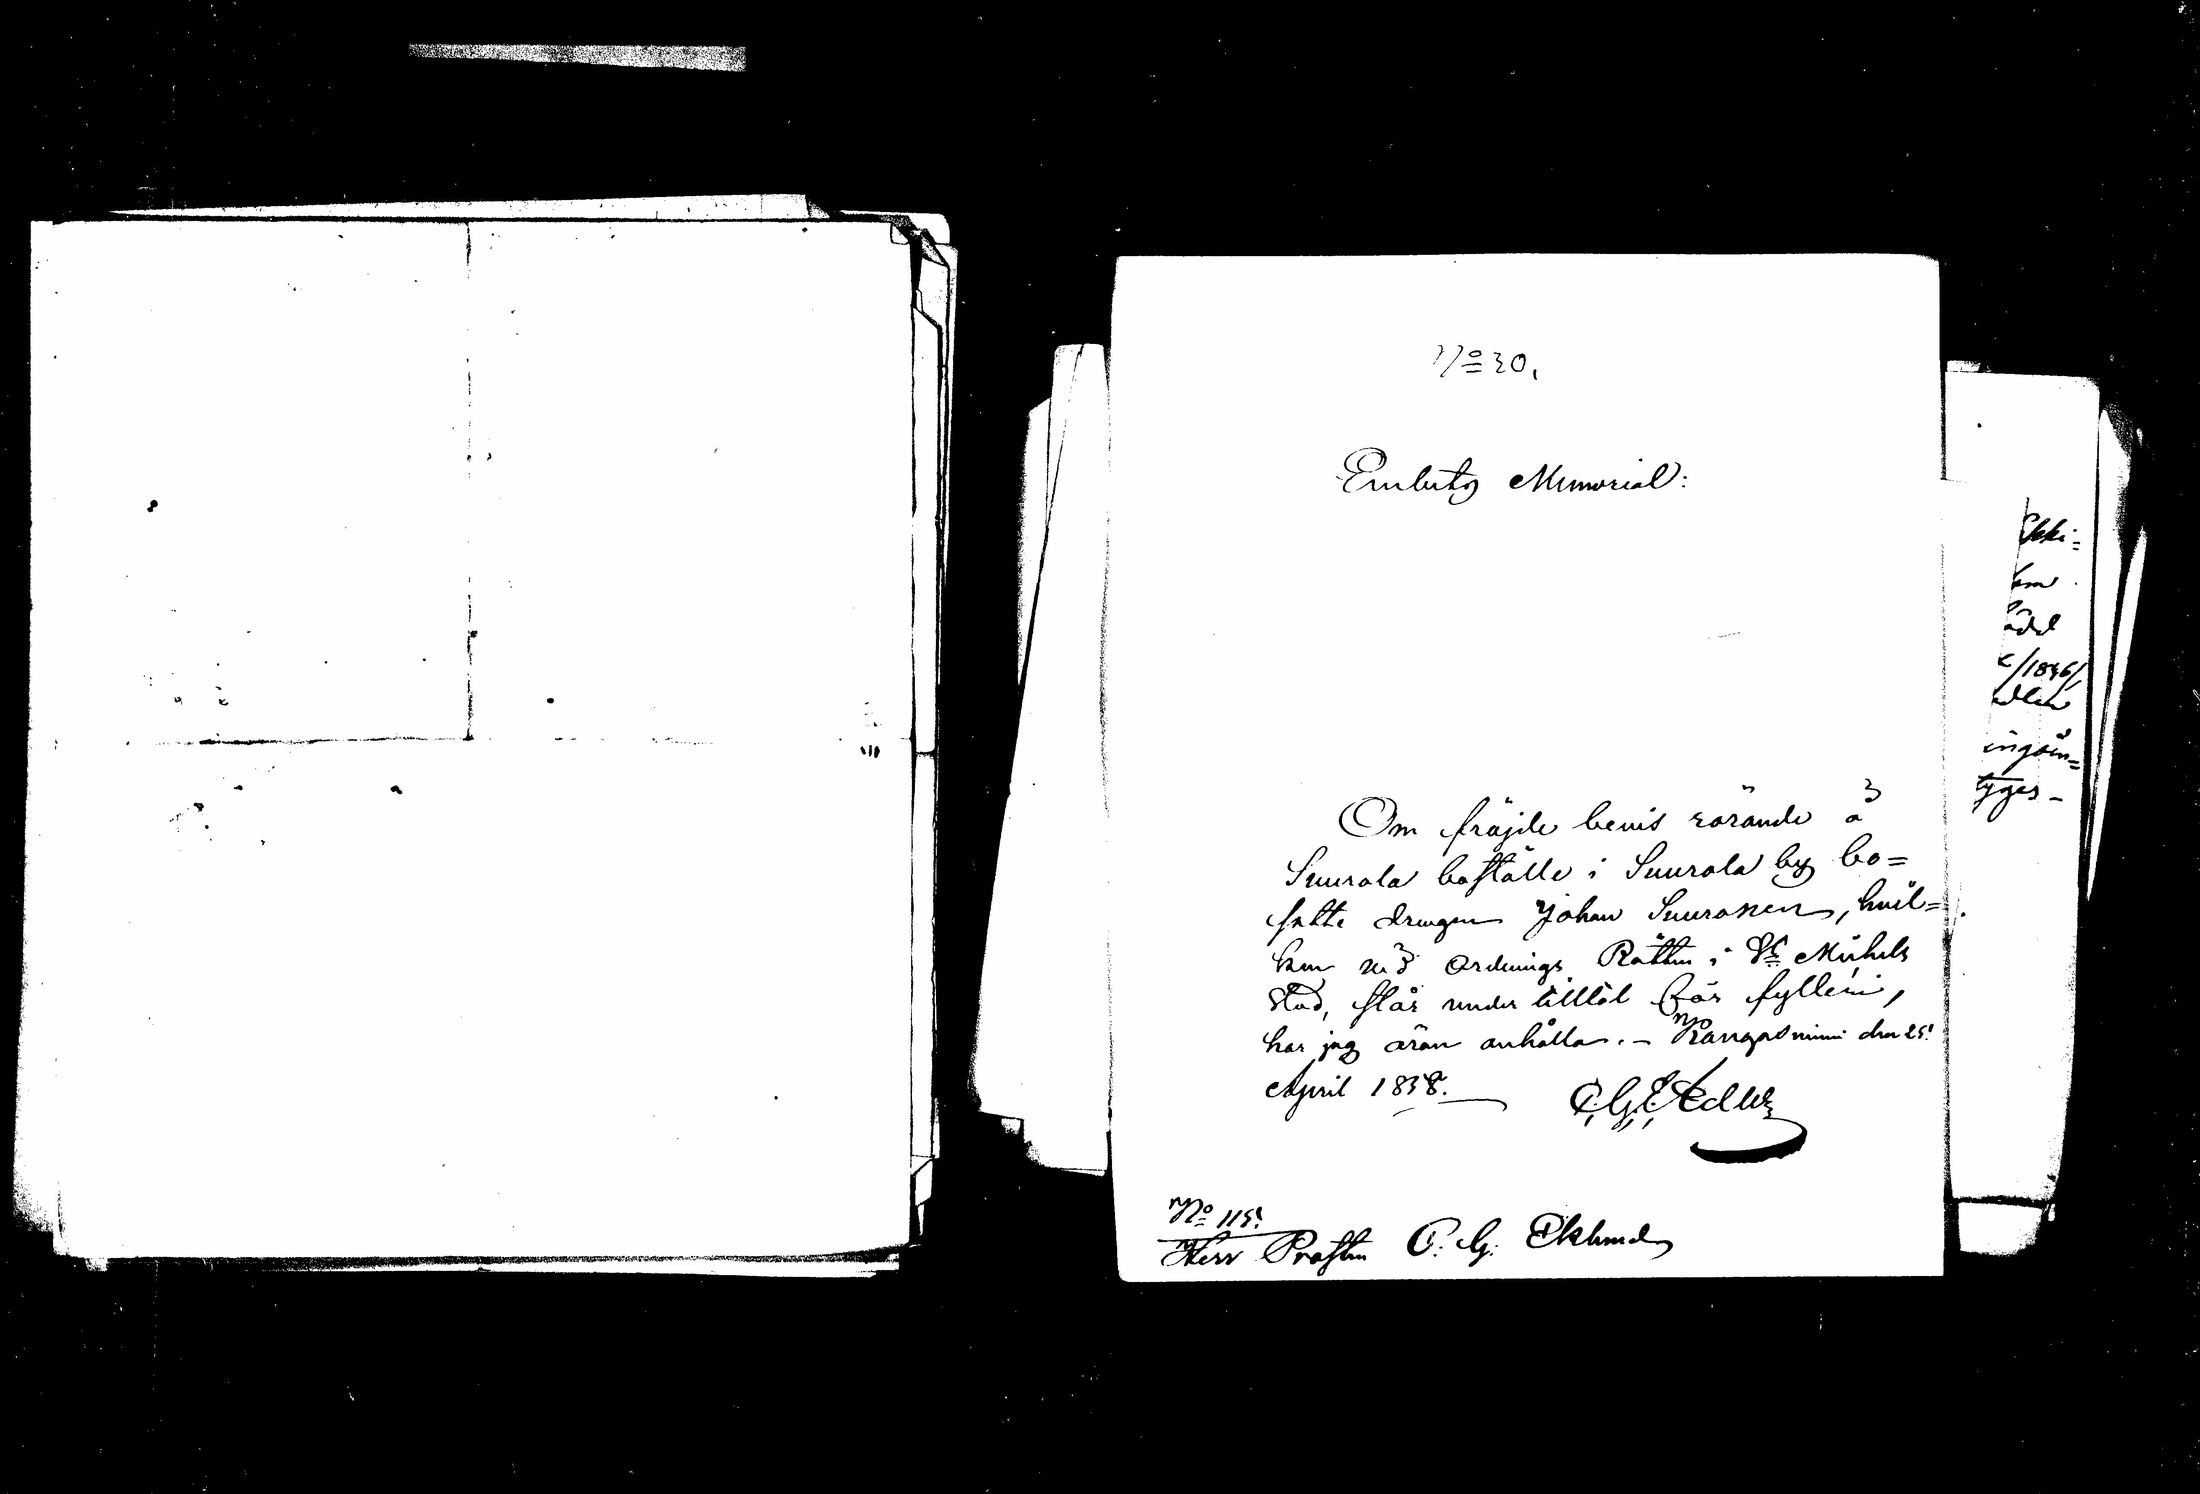 No 30.
Embets Memorial:
Om fräjde bevis rörande å
Suurola boställe i Suurola by bo=
satte drengen Johan Suuronen, hvil=
ken vid Ordnings Rätten i St Michels
Stad, står under tilltal för fylleri,
har jag äran anhålla. - Kangasniemi den 25.
April 1838.
No 115.
Herr Prosten C. G. Eklund
/1836/